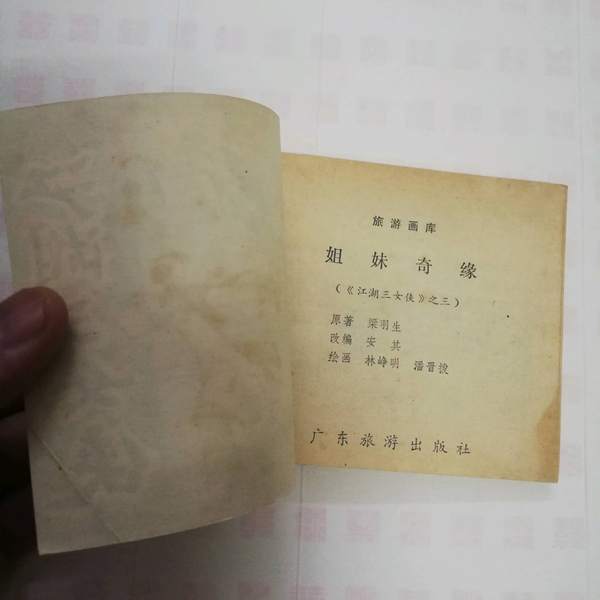 旅游画库
姐妹奇缘
(《江湖三女侠》之三)
原著 梁羽生
改编 安其
绘画 林峥明 潘晋拔
广东旅游出版社